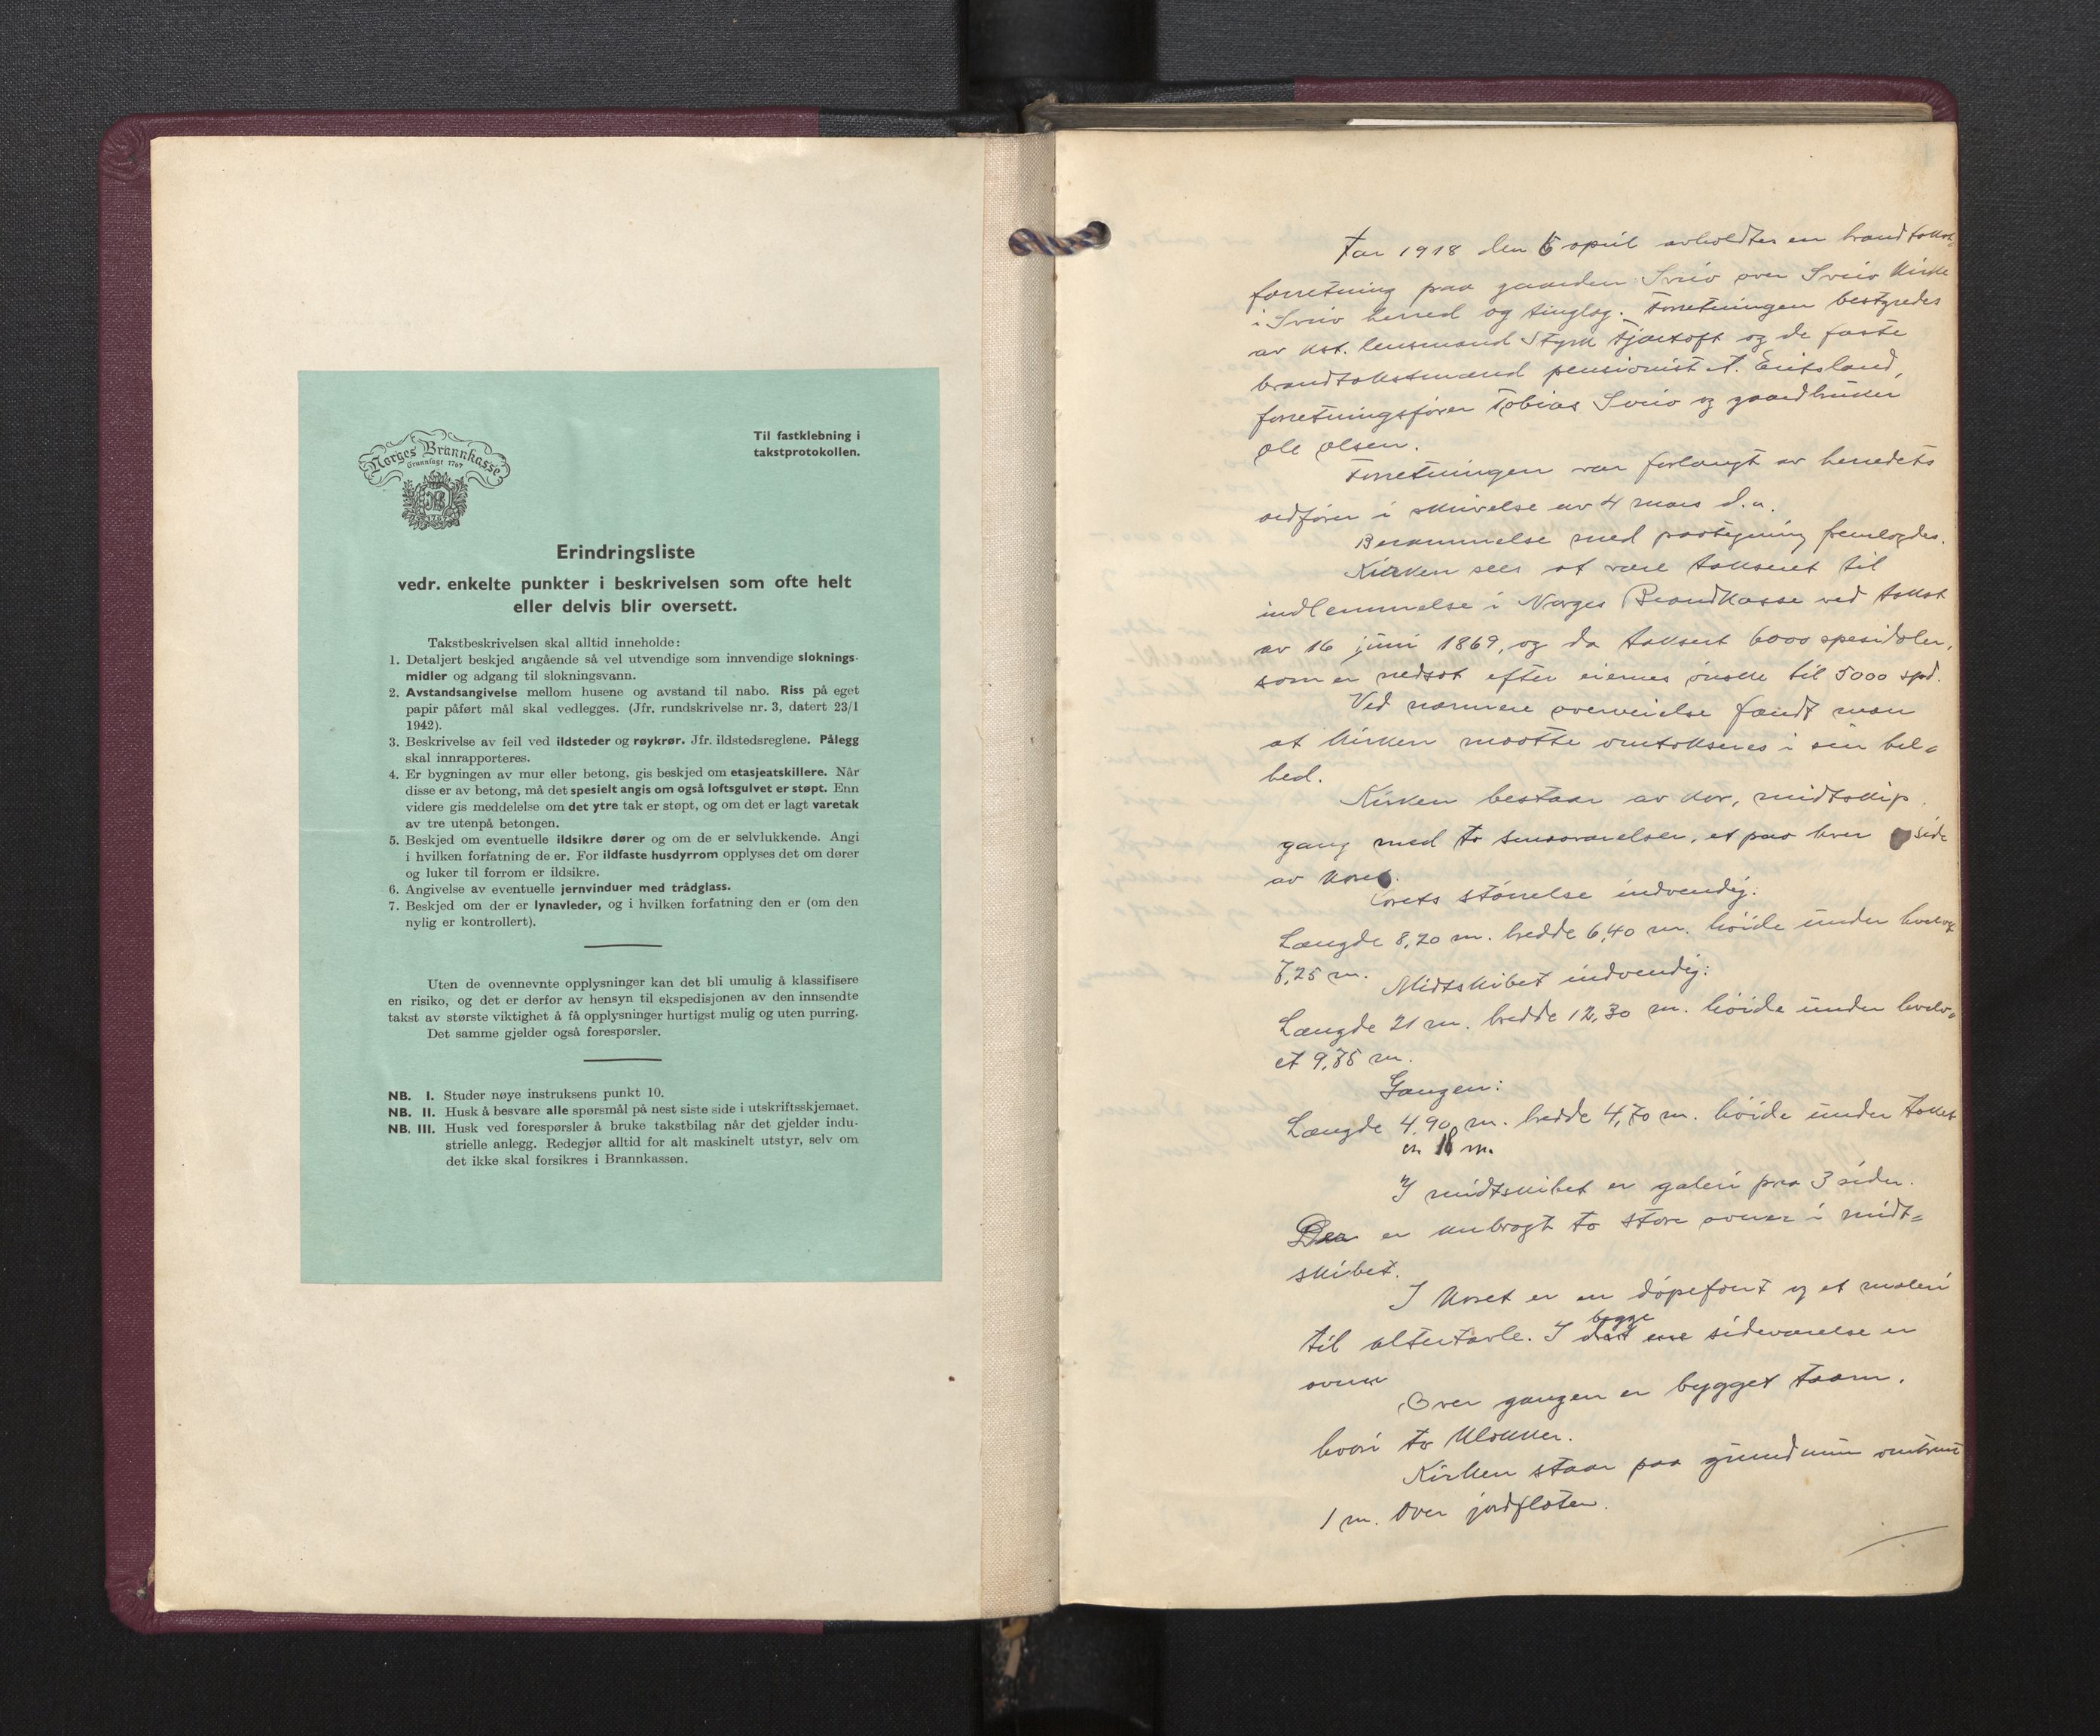 Norges Brannkasse
Grunnlagt 1767
Til fastklebning i
takstprotokollen.
Erindringsliste
vedr. enkelte punkter i beskrivelsen som ofte helt
eller delvis blir oversett.
Takstbeskrivelsen skal alltid inneholde:
1. Detaljert beskjed angående så vel utvendige som innvendige sloknings-
midler og adgang til slokningsvann.
2. Avstandsangivelse mellom husene og avstand til nabo. Riss på eget
papir påført mål skal vedlegges. (Jfr. rundskrivelse nr. 3, datert 23/1
1942).
3. Beskrivelse av feil ved ildsteder og røykrør. Jfr. ildstedsreglene. Pålegg
skal innrapporteres.
4. Er bygningen av mur eller betong, gis beskjed om etasjeatskillere. Når
disse er av betong, må det spesielt angis om også loftsgulvet er støpt. Enn
videre gis meddelelse om det ytre tak er støpt, og om det er lagt varetak
av tre utenpå betongen.
5. Beskjed om eventuelle ildsikre dører og om de er selvlukkende. Angi
i hvilken forfatning de er. For ildfaste husdyrrom opplyses det om dører
og luker til forrom er ildsikre.
6. Angivelse av eventuelle jernvinduer med trådglass.
7. Beskjed om der er lynavleder, og i hvilken forfatning den er (om den
nylig er kontrollert).
Uten de ovennevnte opplysninger kan det bli umulig å klassifisere
en risiko, og det er derfor av hensyn til ekspedisjonen av den innsendte
takst av største viktighet å få opplysninger hurtigst mulig og uten purring.
Det samme gjelder også forespørsler.
NB. I. Studer nøye instruksens punkt 10.
NB. II. Husk å besvare alle spørsmål på nest siste side i utskriftsskjemaet.
NB. III. Husk ved forespørsler å bruke takstbilag når det gjelder indu-
strielle anlegg. Redegjør alltid for alt maskinelt utstyr, selv om
det ikke skal forsikres i Brannkassen.
Aar 1918 den 6 april avholdtes en brandtakst-
forretning paa gaarden Sveio over Sveio kirke
i Sveio herred og tinglag. Forretningen bestyredes
av kst. lensmand Styrk Tjaetoft og de faste
brandtakstmænd pensionist A. Eritsland,
forretningsfører Tobias Sveio og gaardbruker
Ole Olsen.
Forretningen var forlangt av herredets
ordfører i skrivelse av 4 mars d.a.
Berammelse med paategning fremlagdes.
Kirken sees at være takseret til
indlemmelse i Norges Brandkasse ved takst
av 16 juni 1869, og da taksert 6000 spesidaler,
som er nedsat efter eiernes ønske til 5000 spd.
Ved nærmere overveielse fandt man
at kirken maatte omtakseres i sin hel-
hed.
Kirken bestaar av kor, midtskip
gang med to smaaværelser, et paa hver side
av koret.
Corets størrelse indvendig:
Længde 8,20 m. bredde 6,40 m. høide under hvelv
7,25 m. Midtskibet indvendig:
Længde 21 m. bredde 12,30 m. høide under hvelv-
et 9,75 m.
Gangen:
Længde 4.90 m. bredde 4,70 m. høide under taket
en 18 m.
I midtskibet er galeri paa 3 sider.
Der er anbragt to store ovner i midt-
skibet.
I koret er en døpefont og et maleri
til altertavle. I begge sideværelse er
ovner
Over gangen er bygget taarn,
hvori to klokker.
Kirken staar paa grundmur omtrent
1 m. over jordflaten.